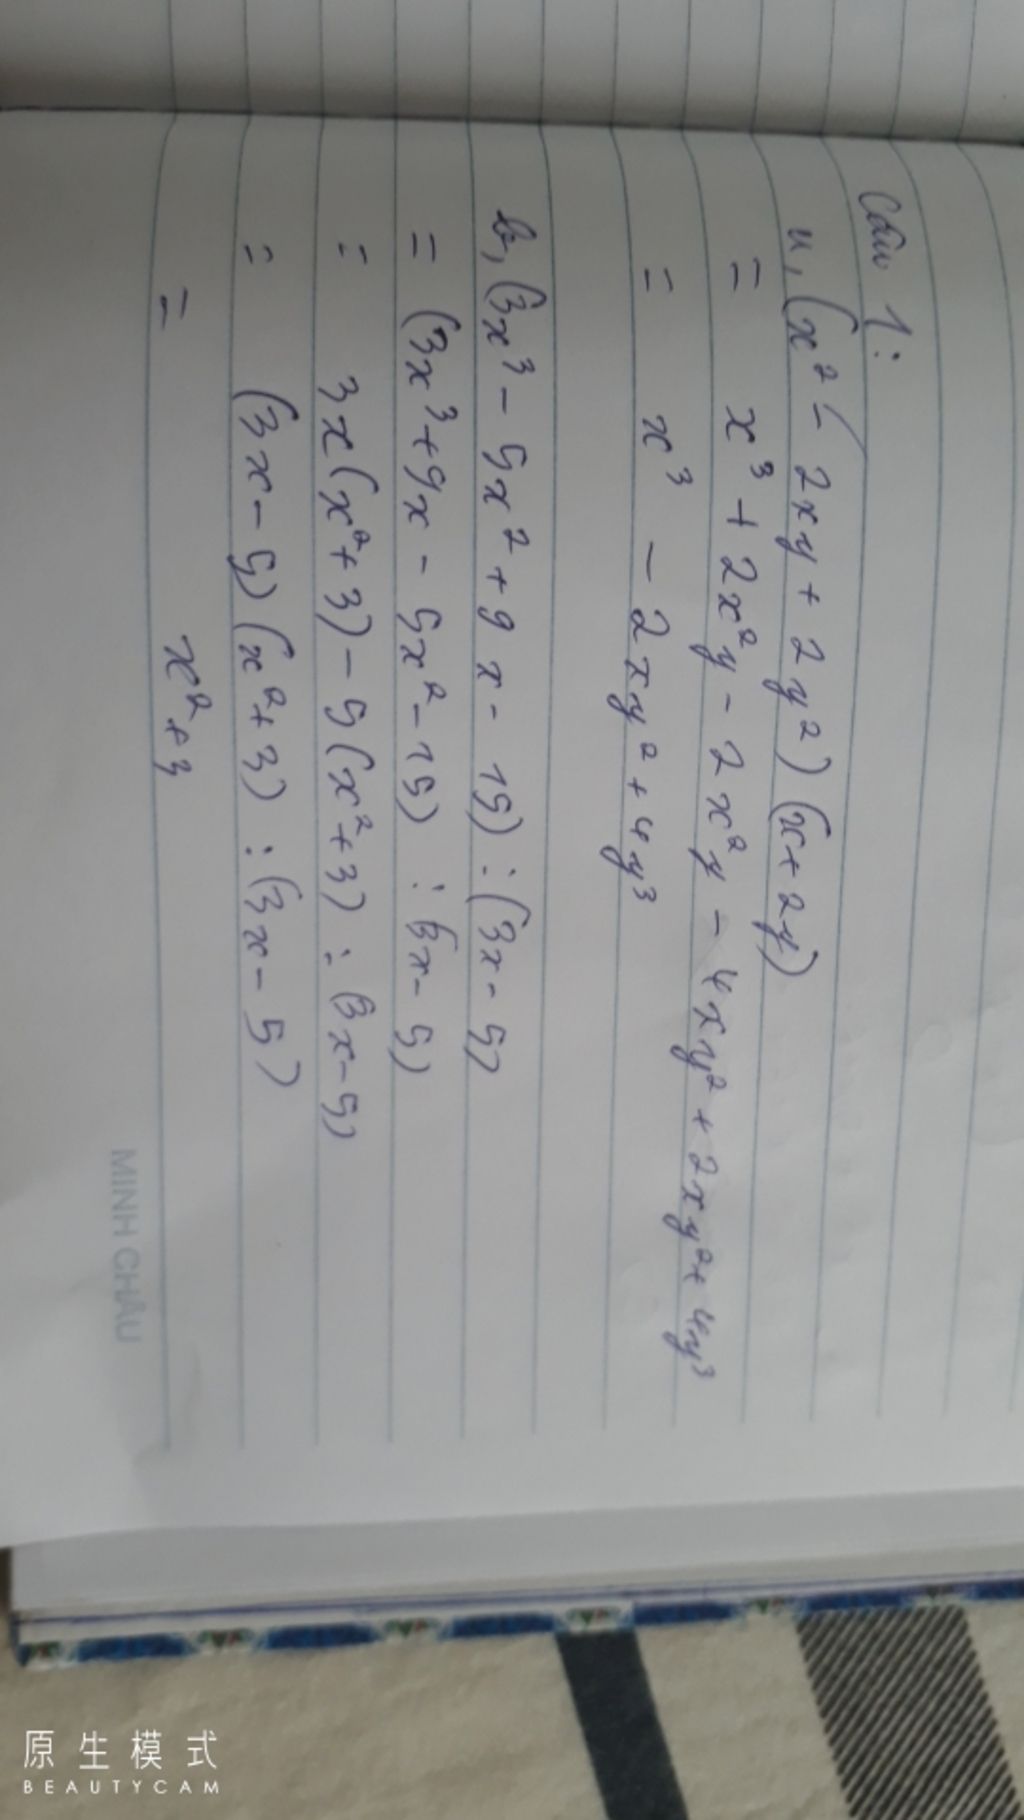 Câu 1:
a, (x² - 2xy + 2y²) (x + 2y)
= x³ + 2x²y - 2x²y - 4xy² + 2xy² + 4y³
= x³ - 2xy² + 4y³
b, (3x³ - 5x² + 9x - 15) : (3x - 5)
= (3x³ + 9x - 5x² - 15) : (3x - 5)
= 3x(x² + 3) - 5(x² + 3) : (3x - 5)
= (3x - 5) (x² + 3) : (3x - 5)
= x² + 3
MINH CHÂU
原生模式
BEAUTYCAM